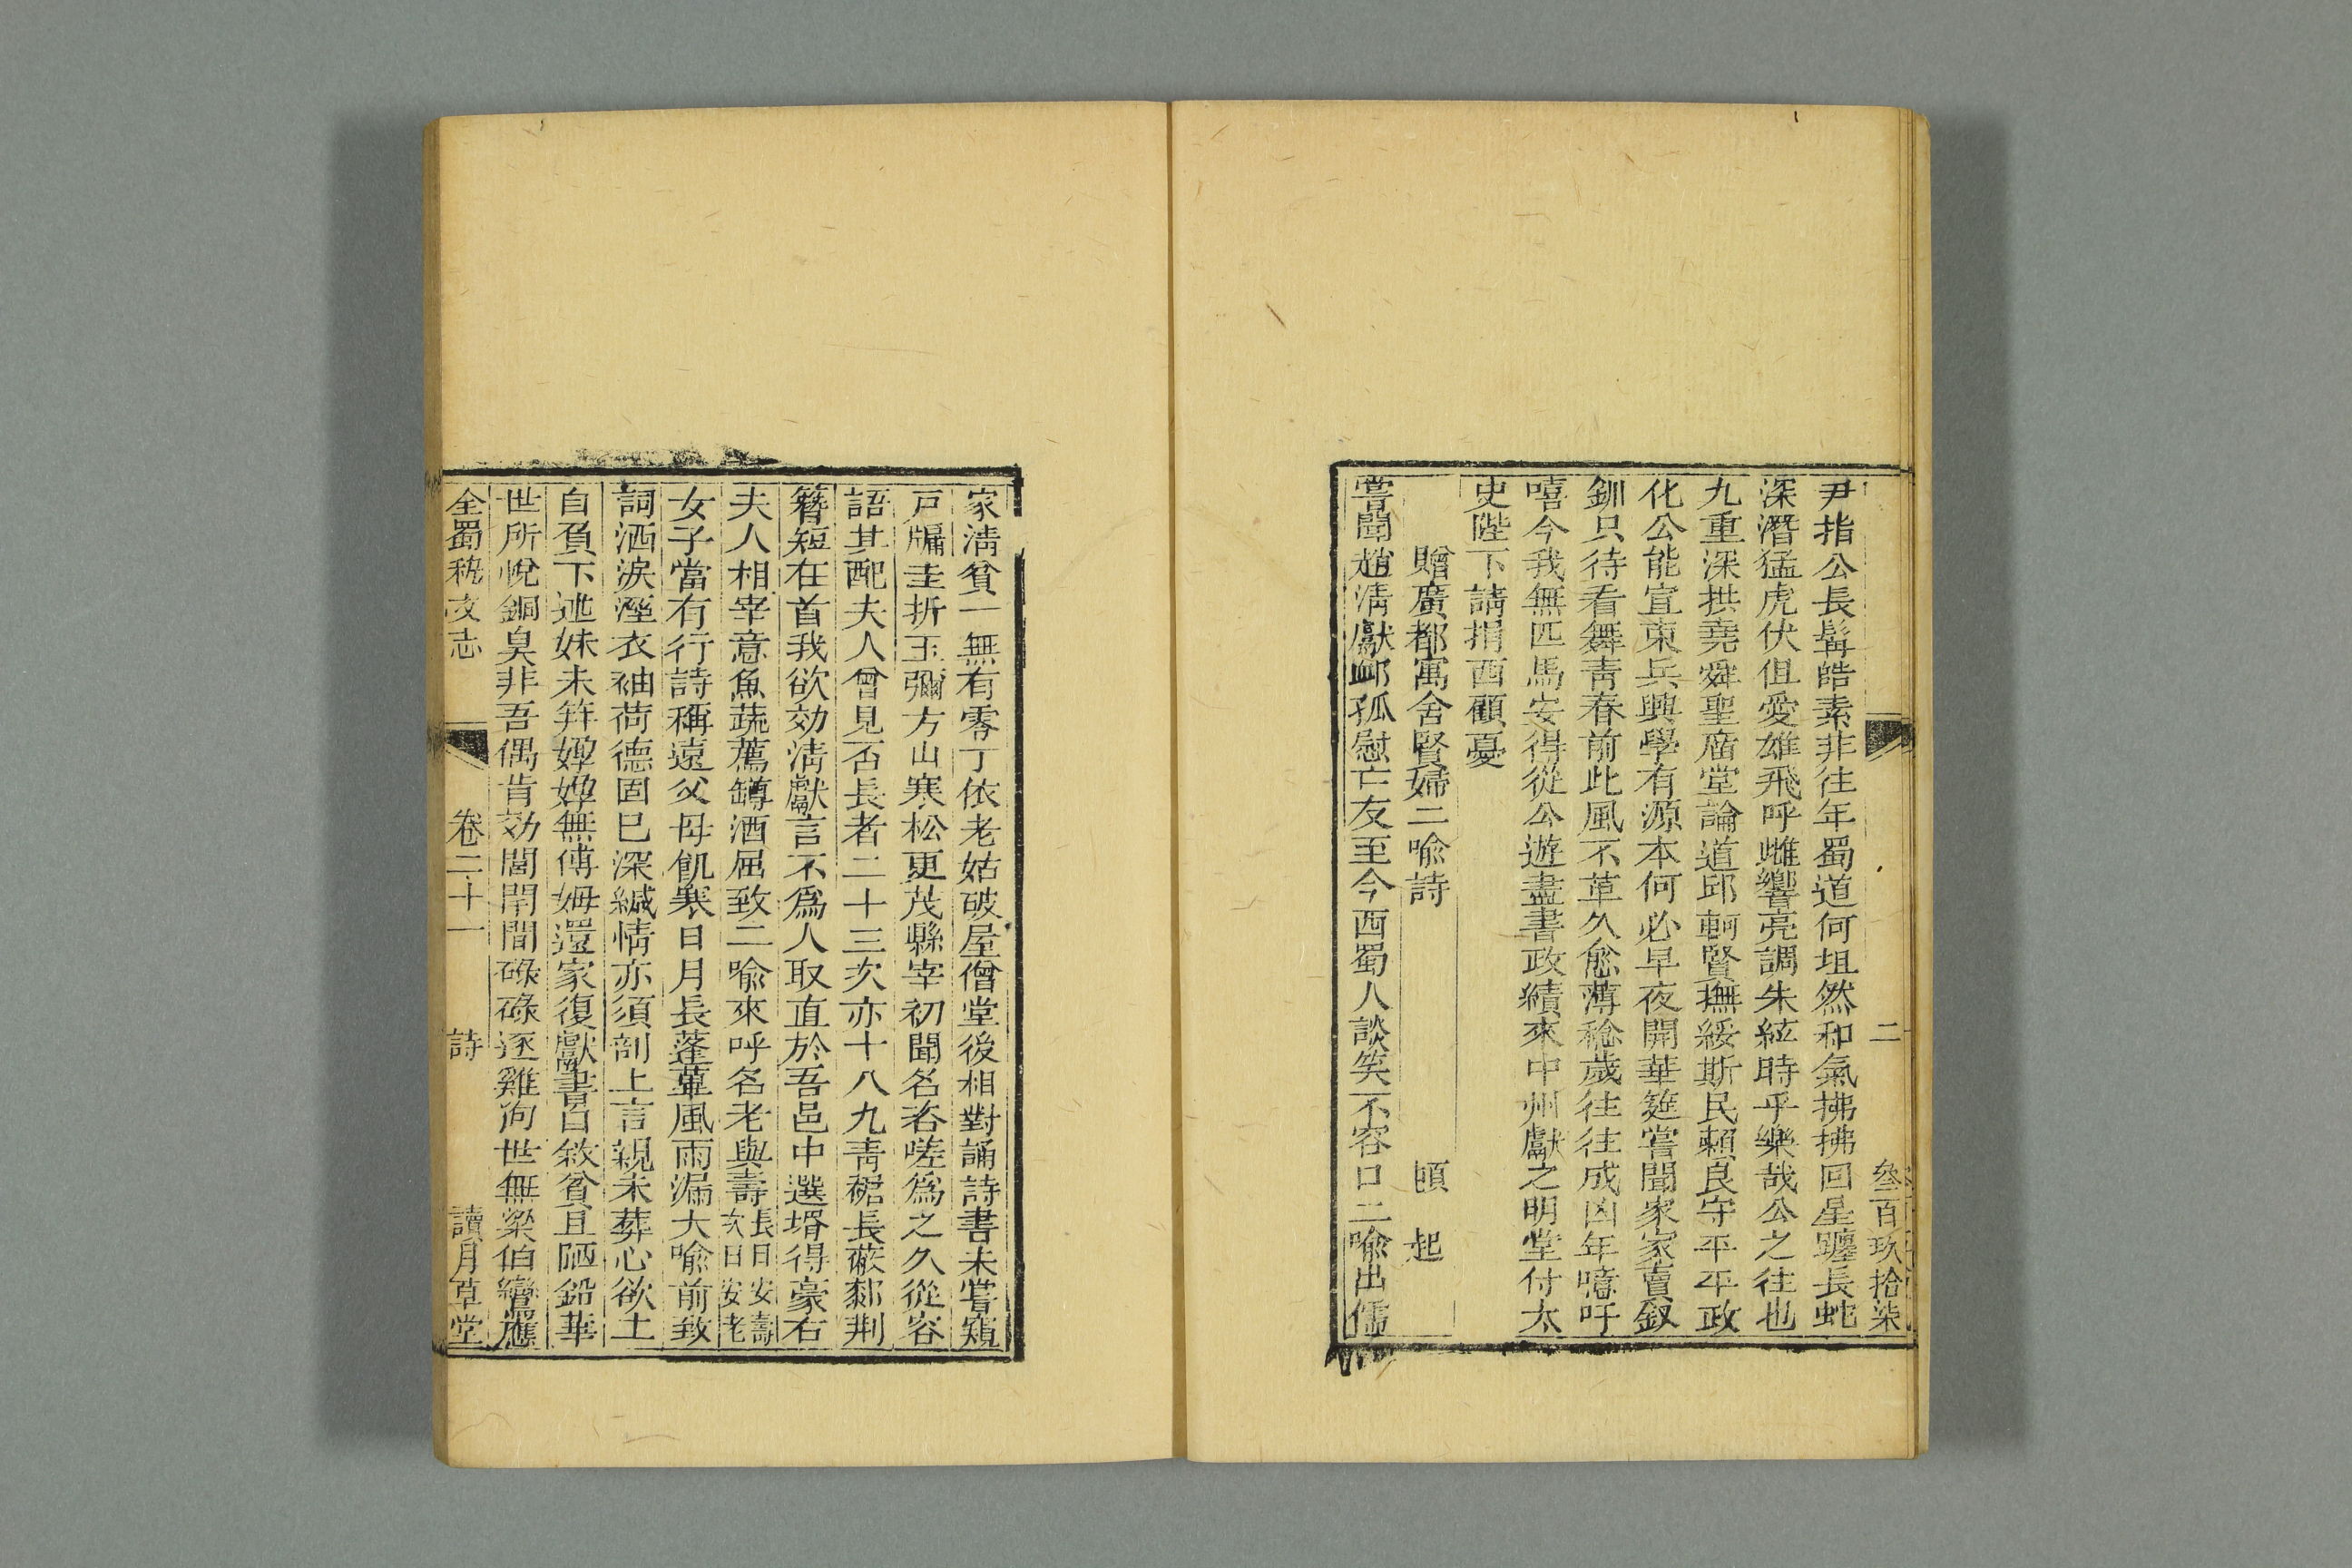 二 叄百玖拾柒
尹指公長髯皓素非往年蜀道何坦然和氣拂拂回星躔長蛇
深潛猛虎伏但愛雄飛呼雌響亮調朱絃時乎樂哉公之往也
九重深拱堯舜聖廟堂論道邱軻賢撫綏斯民賴良守平平政
化公能宣束兵興學有源本何必早夜開華筵嘗聞家家賣釵
釧只待看舞靑春前此風不革久愈薄稔歲往往成凶年噫吁
嘻今我無匹馬安得從公遊盡書政績來中州獻之明堂付太
史陛下請捐西顧憂
贈廣都寓舍賢婦二喻詩 頤起
嘗聞趙淸獻卹孤慰亡友至今西蜀人談笑不容口二喻出儒
家淸貧一無有零丁依老姑破屋僧堂後相對誦詩書未嘗窺
戸牖圭折玉彌方山寒松更茂縣宰初聞名咨嗟爲之久從容
語其配夫人曾見否長者二十三次亦十八九靑裙長蔽鄈荆
簪短在首我欲効淸獻言不爲人取直於吾邑中選壻得豪右
夫人相宰意魚蔬薦罇酒屈致二喻來呼名老與壽長曰安壽次曰安老
女子當有行詩稱遠父母飢寒日月長蓬蓽風雨漏大喻前致
詞洒淚溼衣袖荷德固已深緘情亦須剖上言親未葬心欲土
自負下述妹未笄嬋嬋無傅姆還家復獻書自敘貧且陋鉛華
世所悅銅臭非吾偶肯効閨閈間碌碌逐雞狗世無梁伯鸞應
全蜀秇文志 卷二十一 詩 讀月草堂